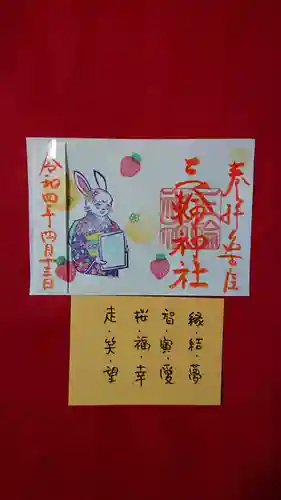 奉拝
三輪神社
令和四年四月十三日
縁・結・夢
智・寅・愛
桜・福・幸
走・笑・望